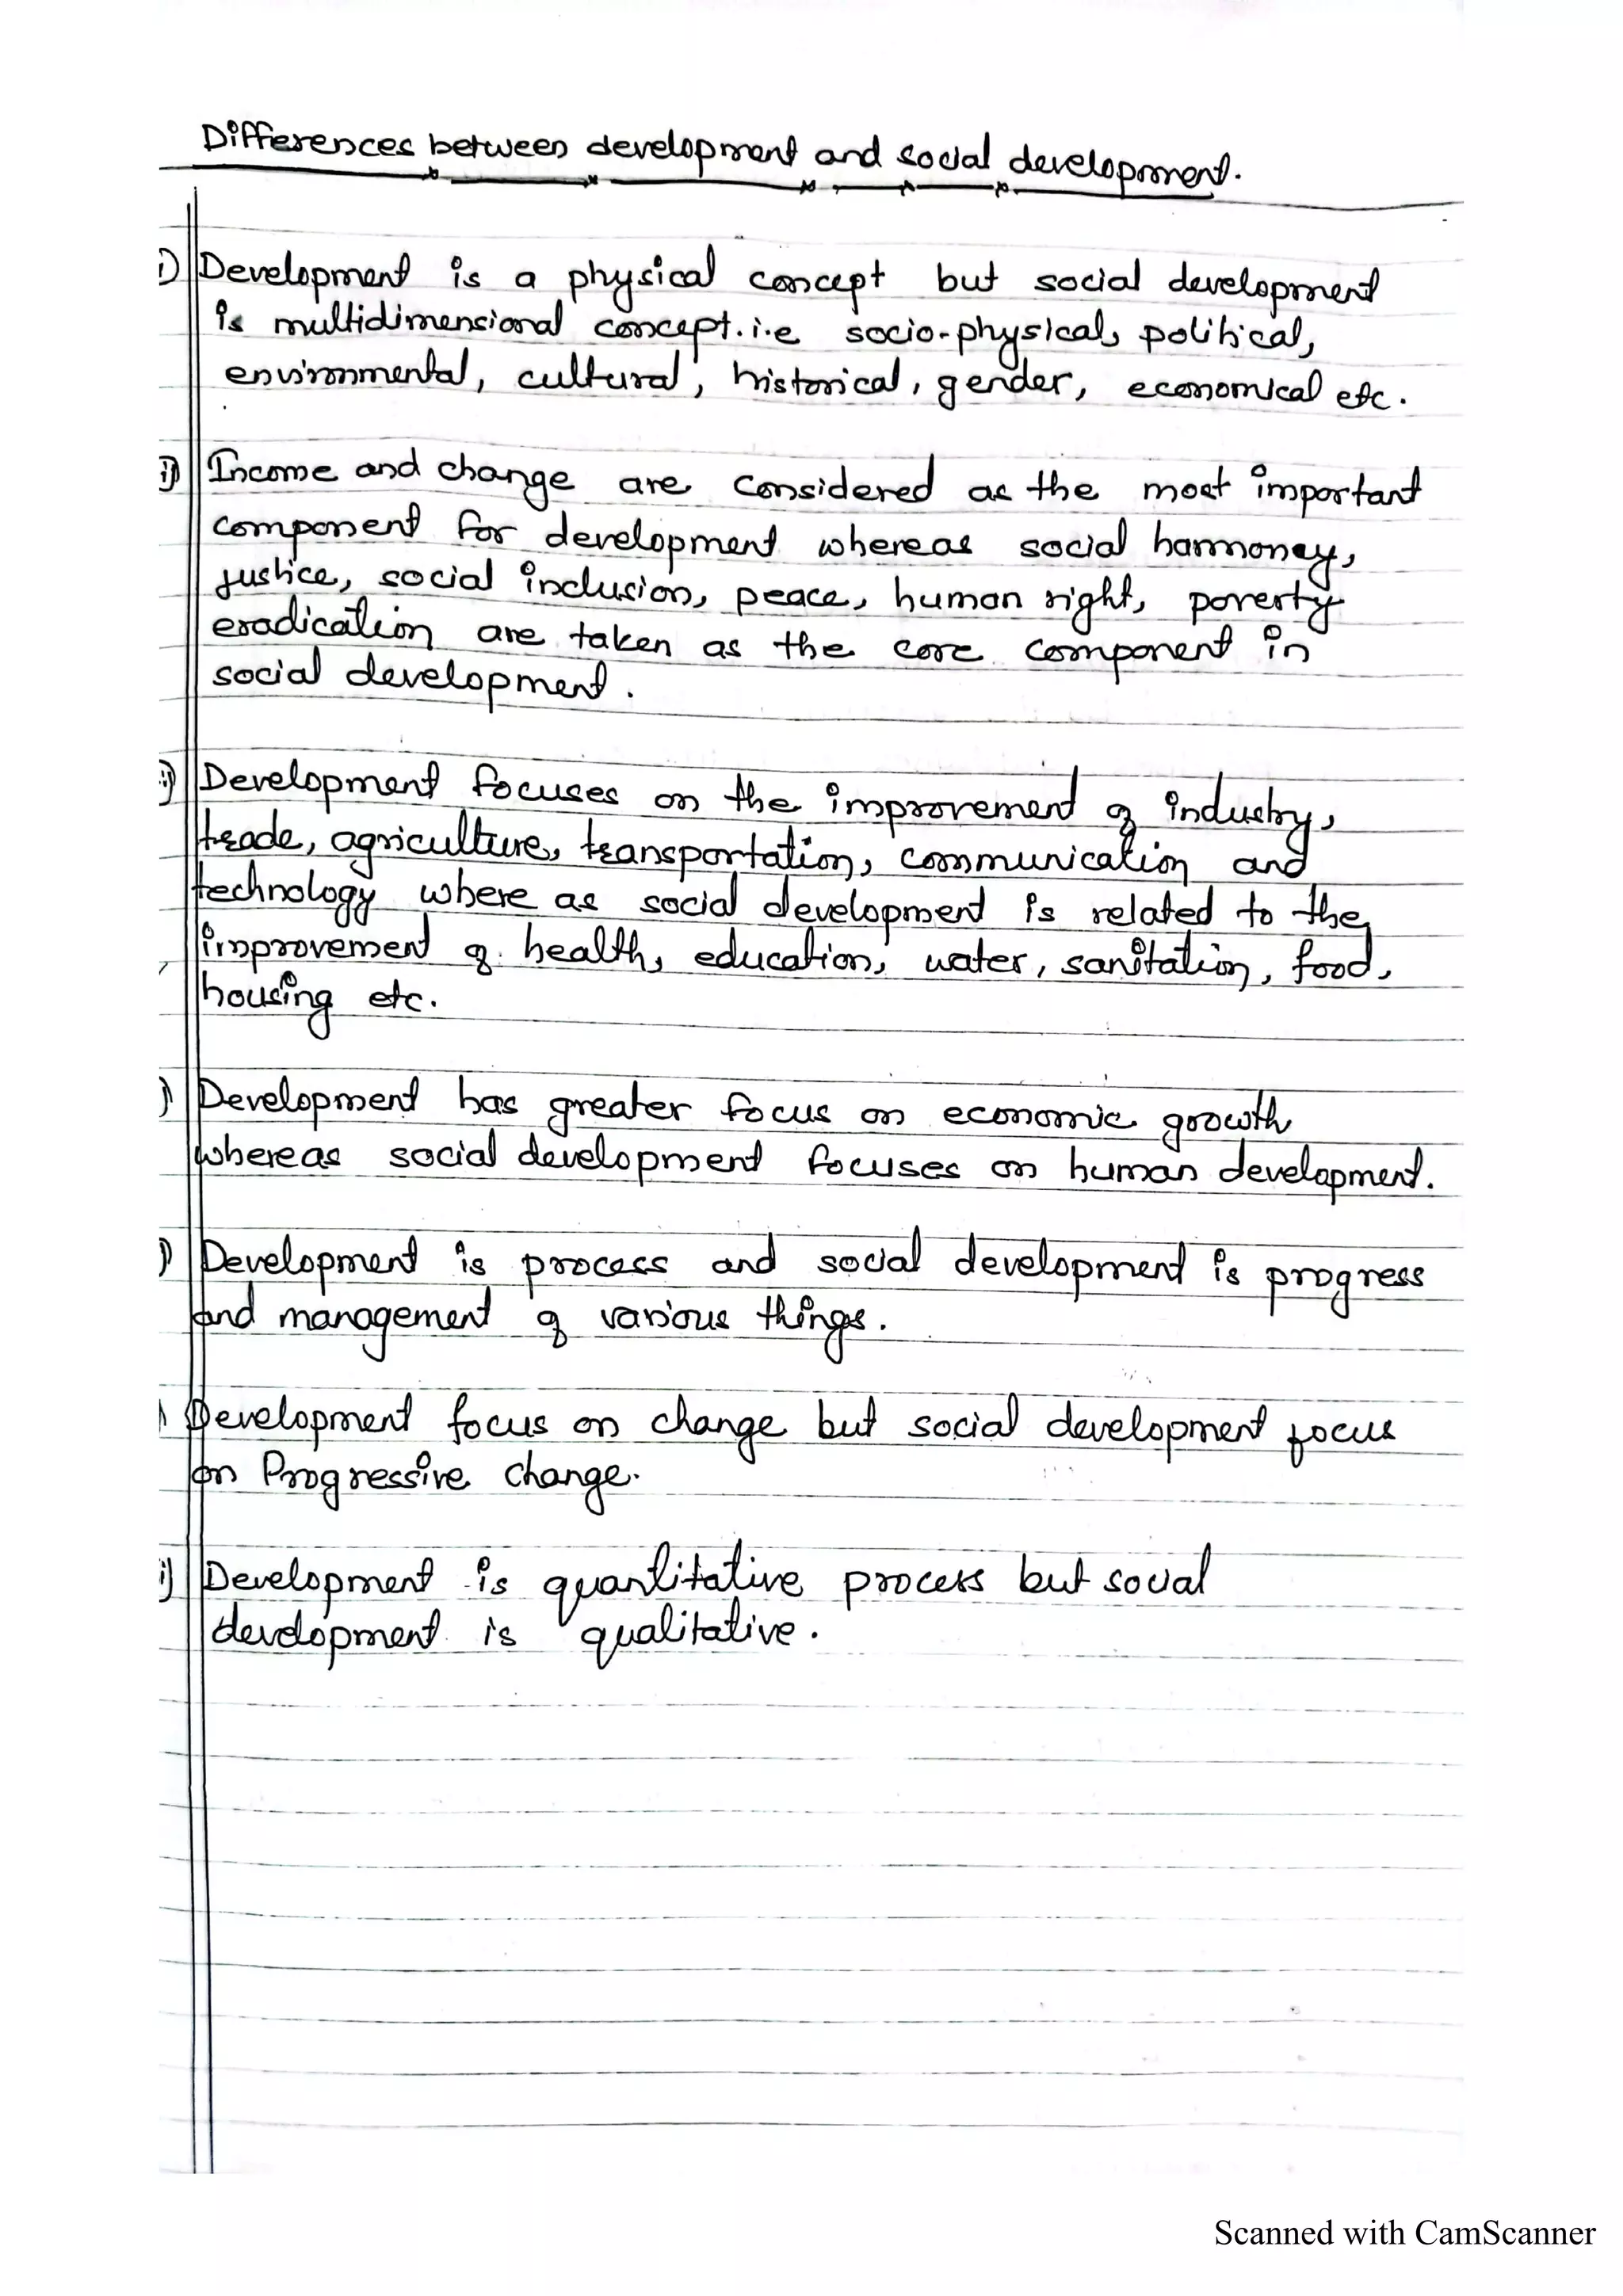 Differences between development and social development.
i) Development is a physical concept but social development
is multidimensional concept. i.e socio-physical, political,
environmental, cultural, historical, gender, economical etc.
ii) Income and change are considered as the most important
component for development whereas social harmoney,
justice, social inclusion, peace, human right, poverty
eradication are taken as the core component in
social development.
ii) Development focuses on the improvement of industry,
trade, agriculture, transportation, communication and
technology where as social development is related to the
improvement of health, education, water, sanitation, food,
housing etc.
) Development has greater focus on economic growth
whereas social development focuses on human development.
) Development is process and social development is progress
and management of various things.
Development focus on change but social development focus
on Progressive change.
i) Development is quantitative process but social
development is qualitative.
Scanned with CamScanner